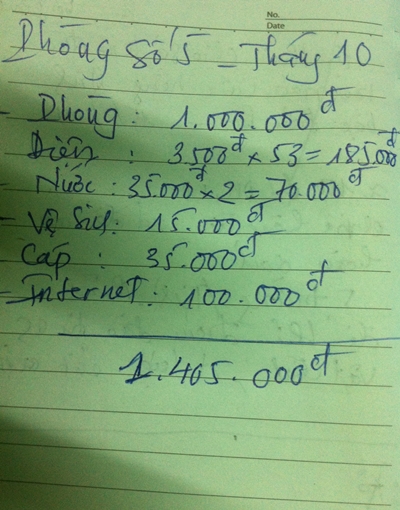 No.
Date
Phòng số 5 - Tháng 10
- Phòng: 1.000.000đ
Điện: 3.500đ × 53 = 185.000đ
- Nước: 35.000đ × 2 = 70.000đ
- Vệ Sinh: 15.000đ
Cáp: 35.000đ
- Internet: 100.000đ
1.405.000đ